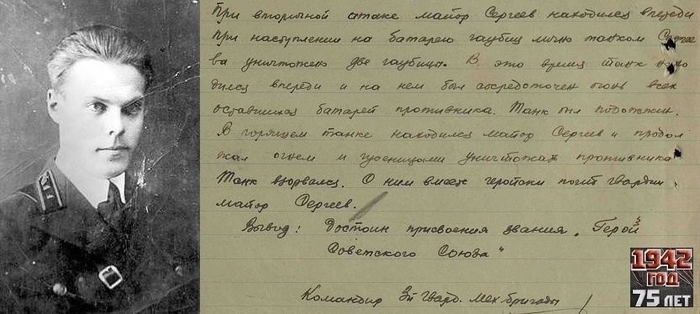 При вторичной атаке майор Сергеев находился впереди
При наступлении на батарею гаубиц лично танком Серге
ва уничтожено две гаубицы. В это время танк нахо
дился впереди и на нем был сосредоточен огонь всех
оставшихся батарей противника. Танк был подожжен.
В горящем танке находился майор Сергеев и продол
жал огнем и гусеницами уничтожать противника
Танк взорвался. С ним вместе геройски погиб гвардии
майор Сергеев.
Вывод: Достоин присвоения звания „Герой
Советского Союза"
Командир 3й Гвард. мех. бригады
1942
ГОД
75 ЛЕТ